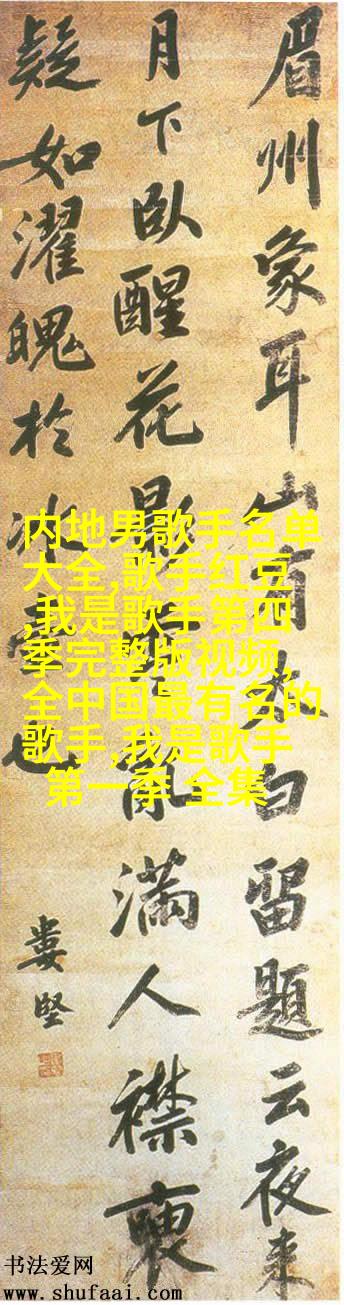 眉州象耳山有李白留題云夜来
月下臥醒花影亂滿人襟
疑如濯魄於冰也
婁堅
内地男歌手名单
大全,歌手红豆
,我是歌手第四
季完整版视频,
全中国最有名的
歌手,我是歌手
第一季 全集
书法爱网
www.shufaai.com